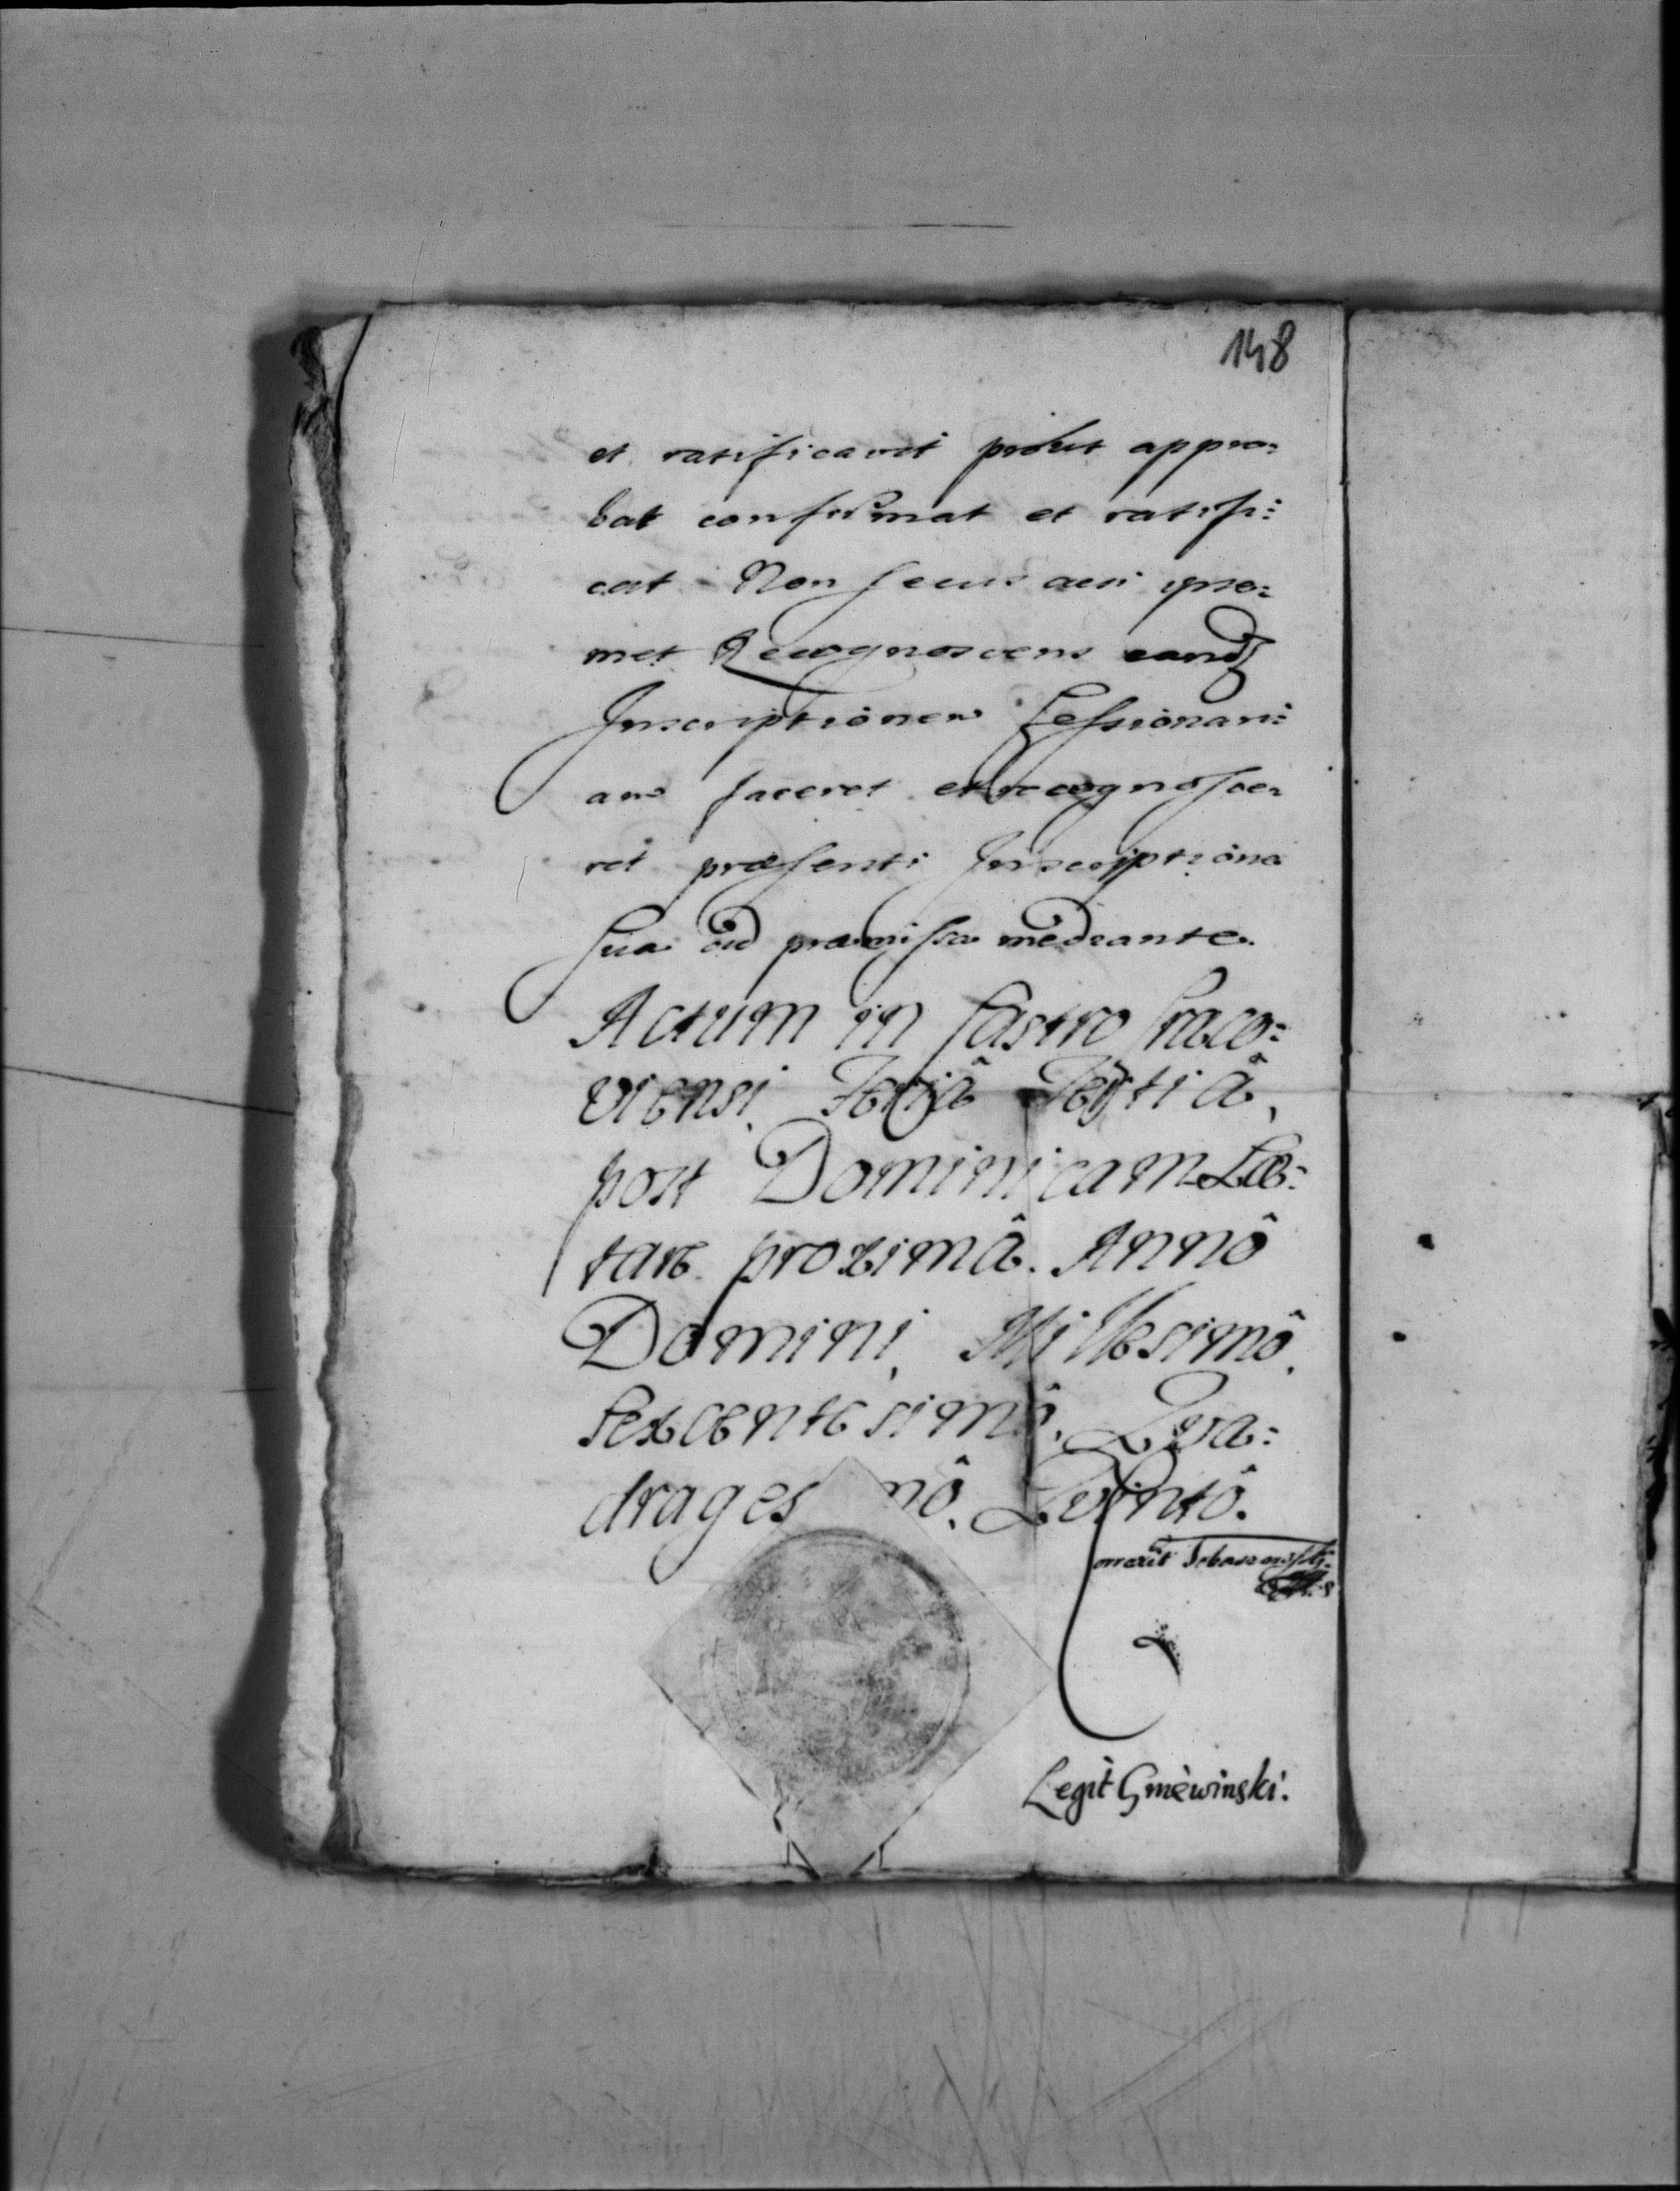 148
et ratificavit prout appro=
bat confirmat et ratifi=
cat Non secus acsi ipse=
met Recognoscens eandẽ
Inscriptionem Cessionari=
am faceret et recognosce=
ret præsenti Inscriptione
sua ad præmissa mediante.
Actum in Castro Craco=
viensi, Feriâ Tertiâ,
post Dominicam Læ=
tare proximâ. Annô
Domini, Millesimô,
sexcentesimô, Qua=
drages mô, Quintô.
Correxit
Legit Gniewinski.